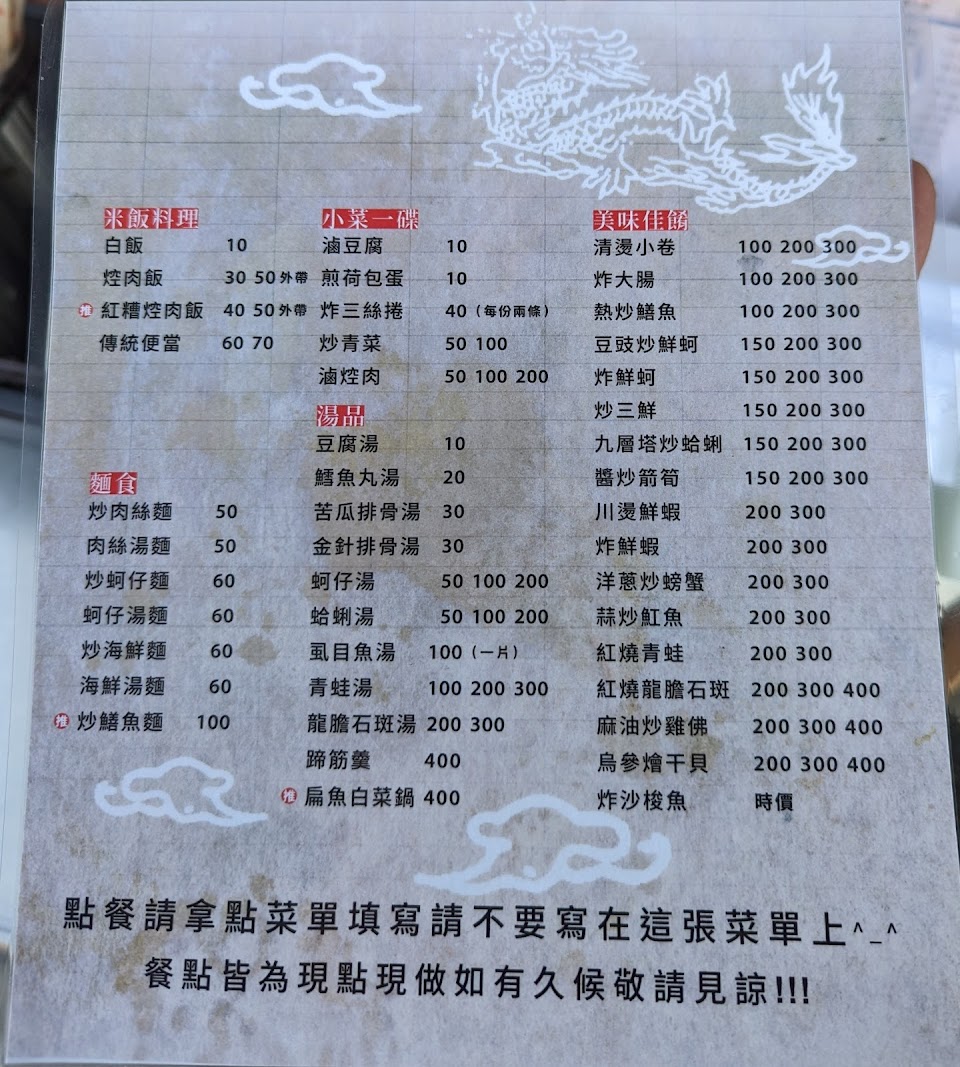 米飯料理
白飯 10
焢肉飯 30 50外帶
推 紅糟焢肉飯 40 50外帶
傳統便當 60 70
麵食
炒肉絲麵 50
肉絲湯麵 50
炒蚵仔麵 60
蚵仔湯麵 60
炒海鮮麵 60
海鮮湯麵 60
推 炒鱔魚麵 100
小菜一碟
滷豆腐 10
煎荷包蛋 10
炸三絲捲 40（每份兩條）
炒青菜 50 100
滷焢肉 50 100 200
湯品
豆腐湯 10
鱈魚丸湯 20
苦瓜排骨湯 30
金針排骨湯 30
蚵仔湯 50 100 200
蛤蜊湯 50 100 200
虱目魚湯 100（一片）
青蛙湯 100 200 300
龍膽石斑湯 200 300
蹄筋羹 400
推 扁魚白菜鍋 400
美味佳餚
清燙小卷 100 200 300
炸大腸 100 200 300
熱炒鱔魚 100 200 300
豆豉炒鮮蚵 150 200 300
炸鮮蚵 150 200 300
炒三鮮 150 200 300
九層塔炒蛤蜊 150 200 300
醬炒箭筍 150 200 300
川燙鮮蝦 200 300
炸鮮蝦 200 300
洋蔥炒螃蟹 200 300
蒜炒魟魚 200 300
紅燒青蛙 200 300
紅燒龍膽石斑 200 300 400
麻油炒雞佛 200 300 400
烏參燴干貝 200 300 400
炸沙梭魚 時價
點餐請拿點菜單填寫請不要寫在這張菜單上^_^
餐點皆為現點現做如有久候敬請見諒!!!